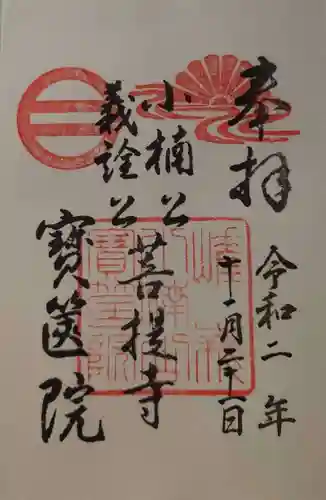 奉拝
令和二年
十一月二十一日
小楠公
義詮公
菩提寺
寶筐院